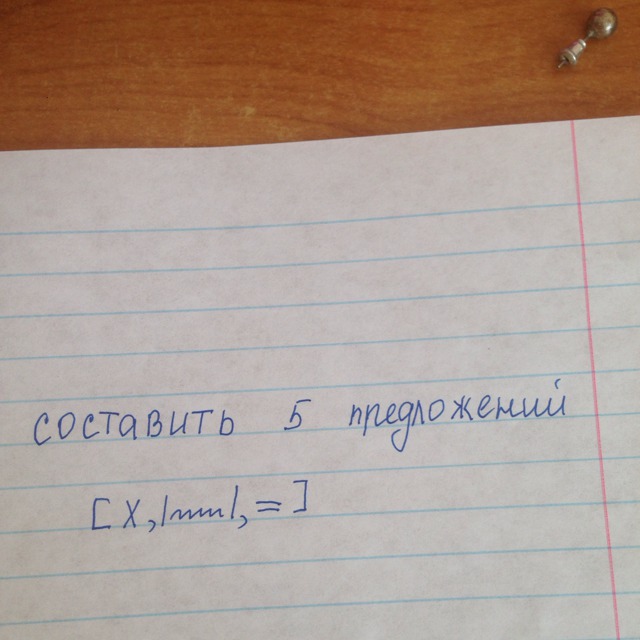 составить 5 предложений
[X, |﹏﹏|, =]